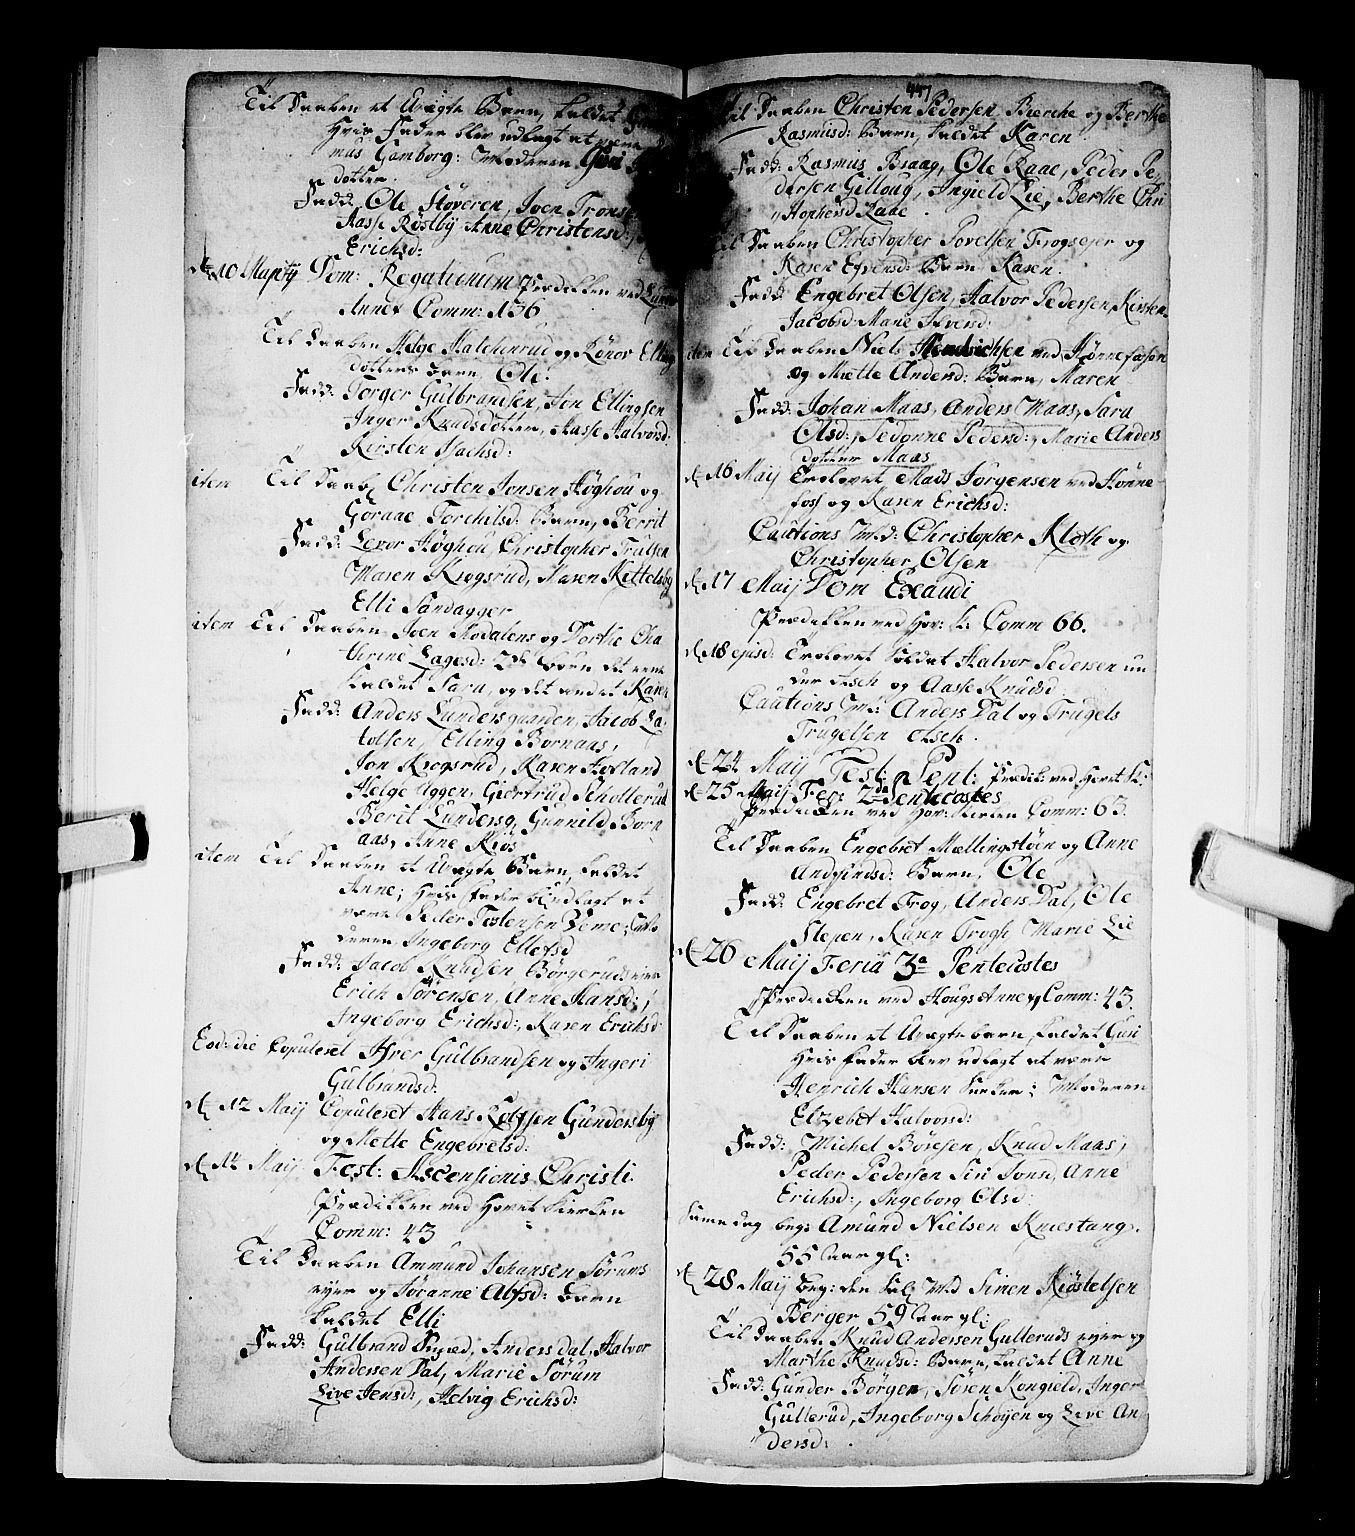 Til Daaben et Uægte Barn, kaldet
Hvis Fader blev udlagt at være
mas Gamborg: Moderen Guri
dotter.
Fadd: Ole Støveren, Joen Trons
Aasse Røstby Anne Christensd:
Erichsd:
d. 10 Maij Dom: Rogationum Prædiken ved Lunder
Annex Comm: 136
Til Daaben Helge Halchenrud og Rønov Elling
dotters Barn, Ole.
Fadd: Torger Gulbrandsen, Jon Ellingsen
Inger Knudsdotter, Aasse Halvord:
Kirsten Isachsd:
item Til Daab: Christen Jonsen Høghou og
Goraae Torchilsd: Barn, Berrit
Fadd: Levor Høghou, Christopher Trulsen
Maren Krogsrud, Maren Kittelsby
Elli Sandagger
item Til Daaben Joen Modalens og Dorthe Cha
thrine Lagesd: 2de Børn det eene
kaldet Sara, og det andet Karen
Fadd: Anders Lundersgaarden, Jacob La
tolsen, Elling Bornaas,
Jon Krogsrud, Karen Hofland
Helge Uggen, Giertrud Schollerud
Berit Lundersg, Gunnild Born
aas, Anne Kiøs
item Til Daaben et Uægte Barn, kaldet
Anne; Hvis Fader udlagt at
være Peder Tostensen Veme; Mo
deren Ingeborg Ellefsd
Fadd: Jacob Knudsen Børgerudseier
Erich Sørensen, Anne Hansd:,
Ingeborg Erichsd:, Karen Erichsd
Eod: die Copuleret Aſver Gulbrandsen og Ingeri
Gulbrandsd:
d. 12 Maij Copuleret Hans Gundersby
og Mette Engebretsd:
d. 14 Maij Fest: Ascensionis Christi.
Prædikken ved Hovet Kierken
Comm: 43
Til Daaben Ammund Johansen Sørums
eyer og Jøranne Abſsd: Barn
kaldet Elli
Fadd: Gulbrand Smed, Anders Dal, Halvor
Andersen Dal, Marie Sørum
Live Jensd:, Helvig Erichsd:
447
Til Daaben Christen Pedersen, Bierche og Berthe
Rasmusd: Barn, kaldet Karen
Fadd: Rasmus Braag, Ole Raae, Peder Pe,
dersen Gilloug, Ingield Lie, Berthe Chri
stophersd Raae.
Til Daaben Christopher Povelsen Frogseier og
Karen Evensd: Barn, Karen.
Fadd: Engebret Olsen, Halvor Pedersen, Kirsten
Jacobsd: Marie Iversd:
item Til Daaben Niels Hendrichsen ved Hønnefossen
og Mætte Andersd: Barn, Maren
Fadd: Johan Maas, Anders Maas, Sara
Olsd:, Sedonne Pedersd:, Marie Anders
dotter Maas
d. 16 Maij Trolovet Mads Jørgensen ved Hønne
foss og Karen Erichsd:
Cautions Md: Christopher Kloth og
Christopher Olsen
d. 17 Maij Dom Exaudi
Prædikken ved Hov: K: Comm 66.
d. 18 ejusd: Trolovet Soldat Halvor Pedersen un
der Asch og Aasse Knudsd
Cautions M: Anders Dal og Trugels
Trugelsen Asch.
d. 24 Maij Fest: Pent: Prædik: ved Hovet K:
d. 25 Maij Fer: 2da Pentecostes
Prædikken ved Hov: Kirken Comm: 63.
Til Daaben Engebret Mællingstøen og Anne
Andfindsd: Barn, Ole
Fadd: Engebret Frog, Anders Dal, Ole
Stepen, Karen Frogs, Marie Lie
d. 26 Maij Feria 3a Pentecostes
Prædikken ved Hougs Annex Comm: 43
Til Daaben et Uægte barn, kaldet Guri
Hvis Fader blev udlagt at være
Henrich Hansen; Moderen
Elzebet Halvorsd:
Fadd: Michel Børesen, Knud Maas,
Peder Pedersen Siri Jonsd, Anne
Erichsd:, Ingeborg Olsd:
Samme dag beg: Amund Nielsen Knestang.
55 Aar gl:
d. 28 Maij beg: den Sal: Md Simen Kiøstelsen
Berger 59 Aar gl:
Til Daaben Knud Andersen Gulleruds eyer og
Marthe Knudsd: Barn, kaldet Anne
Fadd: Gunder Børgen, Søren Kongield, Inger
Gullerud, Ingeborg Schøyen og Live An
dersd: